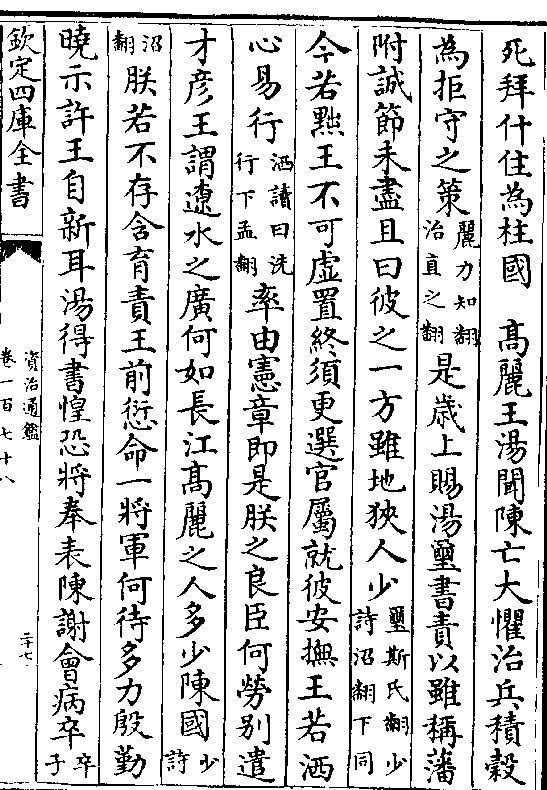 死拜什住為柱國　高麗王湯聞陳亡大懼治兵積糓
為拒守之策麗力知翻治直之翻是歲上賜湯璽書責以雖稱藩
附誠節未盡且曰彼之一方雖地狹人少璽斯氏翻少詩沼翻下同
今若黜王不可虚置終須更選官屬就彼安撫王若洒
心易行洒讀曰洗行下孟翻率由憲章即是朕之良臣何勞别遣
才彦王謂遼水之廣何如長江髙麗之人多少陳國少詩
沼翻朕若不存含育責王前愆命一將軍何待多力殷勤
曉示許王自新耳湯得書惶恐將奉表陳謝會病卒卒子
欽定四庫全書
資治通鑑
卷一百七十八
二十七